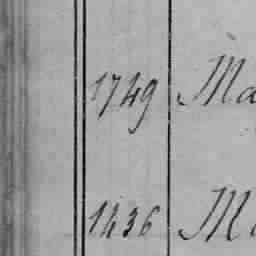 1749 Ma
1436 Ma